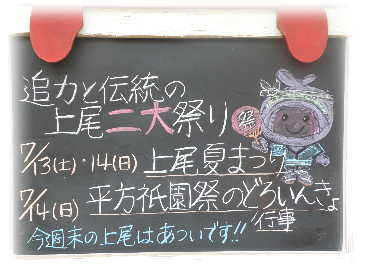 追力と伝統の
上尾二大祭り
祭
7/13(土)・14(日)上尾夏まつり
7/14(日)平方祇園祭のどろいんきょ
行事
今週末の上尾はあついです!!